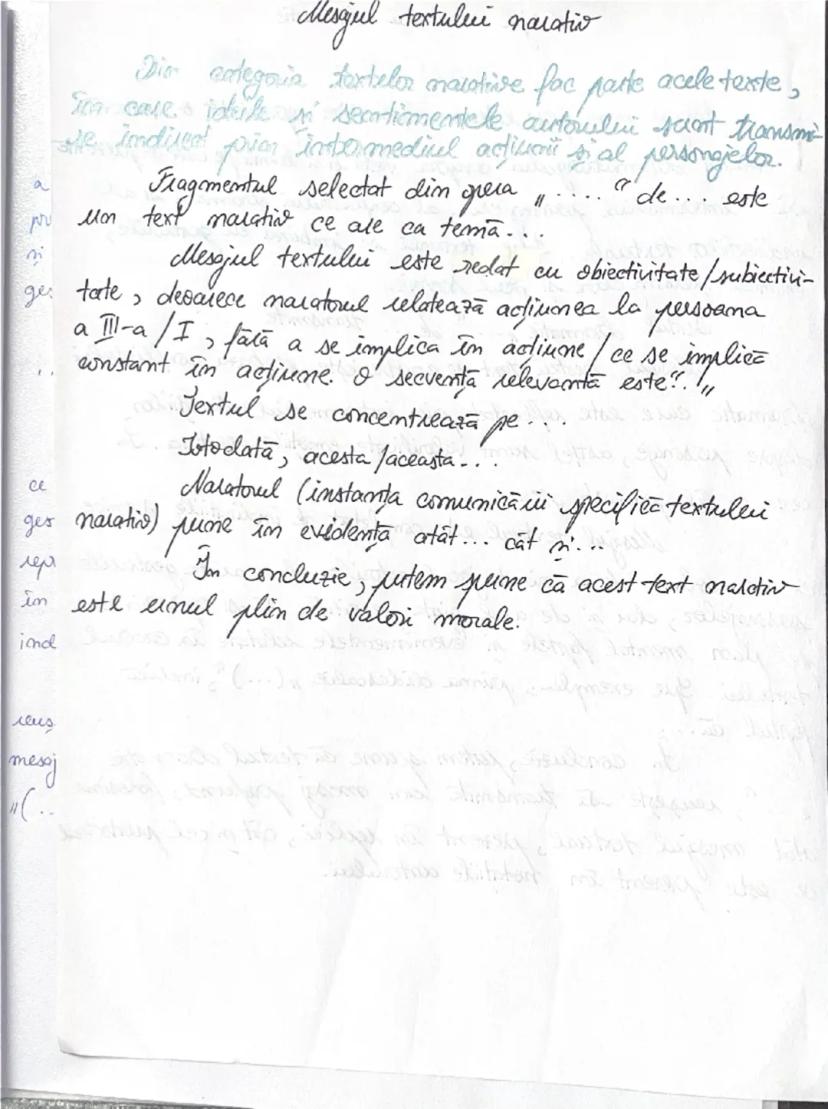 Mesajul textului narativ
Din categoria textelor narative fac parte acele texte,
în care ideile și sentimentele autorului sunt transmi-
se indirect prin intermediul acțiunii și al personajelor.
Fragmentul selectat din opera „....." de... este
un text narativ ce are ca temă...
Mesajul textului este redat cu obiectivitate/subiectivi-
tate, deoarece naratorul relatează acțiunea la persoana
a III-a/I, fără a se implica în acțiune/ce se implică
constant în acțiune. O secvență relevantă este". „
Textul se concentrează pe...
Totodată, acesta/aceasta...
Naratorul (instanța comunicării specifică textului
narativ) pune în evidență atât... cât și...
În concluzie, putem spune că acest text narativ
este unul plin de valori morale.
a
pu
și
ges
..
ce
ges
repr
în
ind
reuș
mesaj
„(..